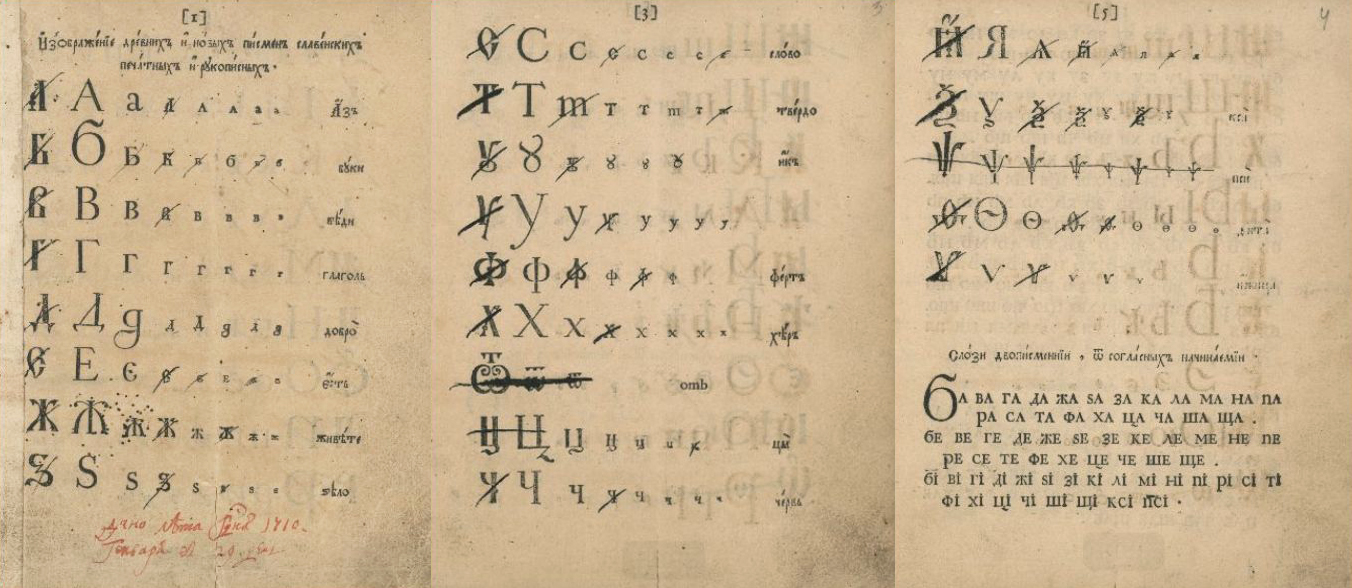 [1]
И҆зѡбраже́нїе дре́внихъ и҆ но́выхъ пи́сменъ славе́нскихъ
печа́тныхъ и҆ рꙋкопи́сныхъ .
А А а а а а а а а҆́зъ
Б Б Б Б Б б б б бꙋ́ки
В В В В В В В В вѣ́ди
Г Г Г Г Г Г Г Г глаго́ль
Д Д д д д д д д добро̀
Є Е є є е е е е є҆́сть
Ж Ж Ж Ж Ж Ж Ж Ж живѣ́те
Ѕ Ѕ Ѕ Ѕ Ѕ Ѕ Ѕ Ѕ ѕѣло̀
дано лѣта 1710.
Генваря въ 29. день
[3]
С С С С С С С С сло́во
Т Т т т т т т т тве́рдо
Ꙋ Ꙋ ꙋ ꙋ ꙋ ꙋ ꙋ и҆́къ
У У У У У У У У
Ф Ф Ф Ф Ф Ф фе́ртъ
Х Х Х Х Х Х Х Х хѣ́ръ
Ѿ ѿ ѿ отъ
Ц Ц Ц Ц Ц Ц ц цы̀
Ч Ч Ч Ч Ч Ч Ч Ч че́рвь
[5]
4
Ꙗ Я Ѧ Ꙗ Ѧ я ѧ ѧ
Ѯ Ѯ Ѯ Ѯ Ѯ Ѯ Ѯ ѯ ксѝ
Ѱ Ѱ Ѱ Ѱ Ѱ Ѱ Ѱ Ѱ псѝ
Ѳ Ѳ Ѳ Ѳ Ѳ Ѳ Ѳ Ѳ ѳита
Ѵ Ѵ Ѵ Ѵ Ѵ Ѵ ижица
Сло́зи двопи́сменнїи , ѿ согла́сныхъ начина́емїи .
БА ВА ГА ДА ЖА ЅА ЗА КА ЛА МА НА ПА
РА СА ТА ФА ХА ЦА ЧА ША ЩА .
БЕ ВЕ ГЕ ДЕ ЖЕ ЅЕ ЗЕ КЕ ЛЕ МЕ НЕ ПЕ
РЕ СЕ ТЕ ФЕ ХЕ ЦЕ ЧЕ ШЕ ЩЕ .
бі ві гі ді жі ѕі зі кі лі мі ні пі рі сі ті
фі хі ці чі ші щі ксі псі .